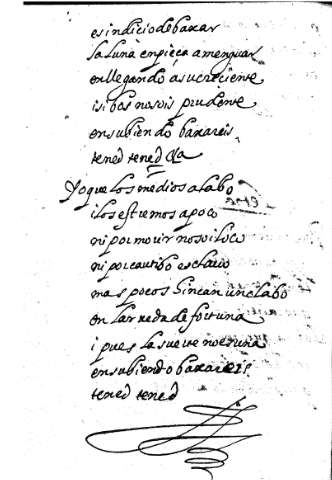 es indicio de baxar
la luna enpieça a menguar
en llegando a su creciente
i si bos no sois prudente
en subiendo baxareis
tened tened &a
Yo que los medios alabo
i los estremos apoco
ni por morir no soi loco
ni por cautibo esclavo
mas pocos hincan un clabo
en la rueda de fortuna
i pues la suerte no es una
en subiendo baxareis
tened tened